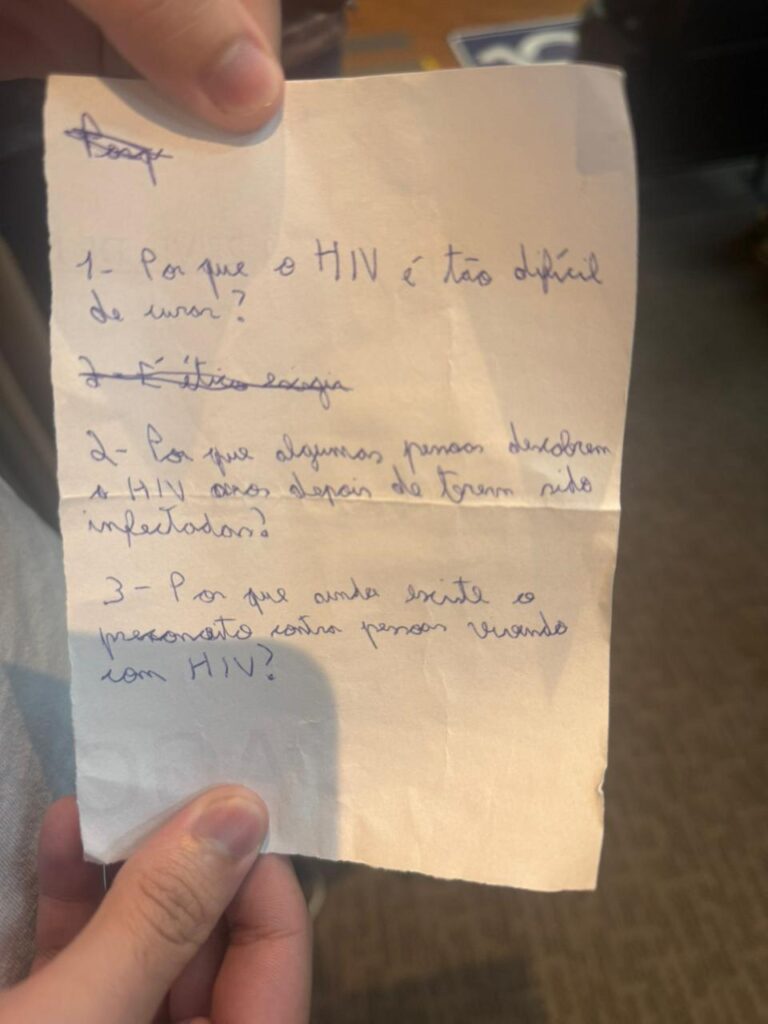 1- Por que o HIV é tão difícil
de curar?
2- É ético exigir
2- Por que algumas pessoas descobrem
o HIV anos depois de terem sido
infectadas?
3- Por que ainda existe o
preconceito contra pessoas vivendo
com HIV?